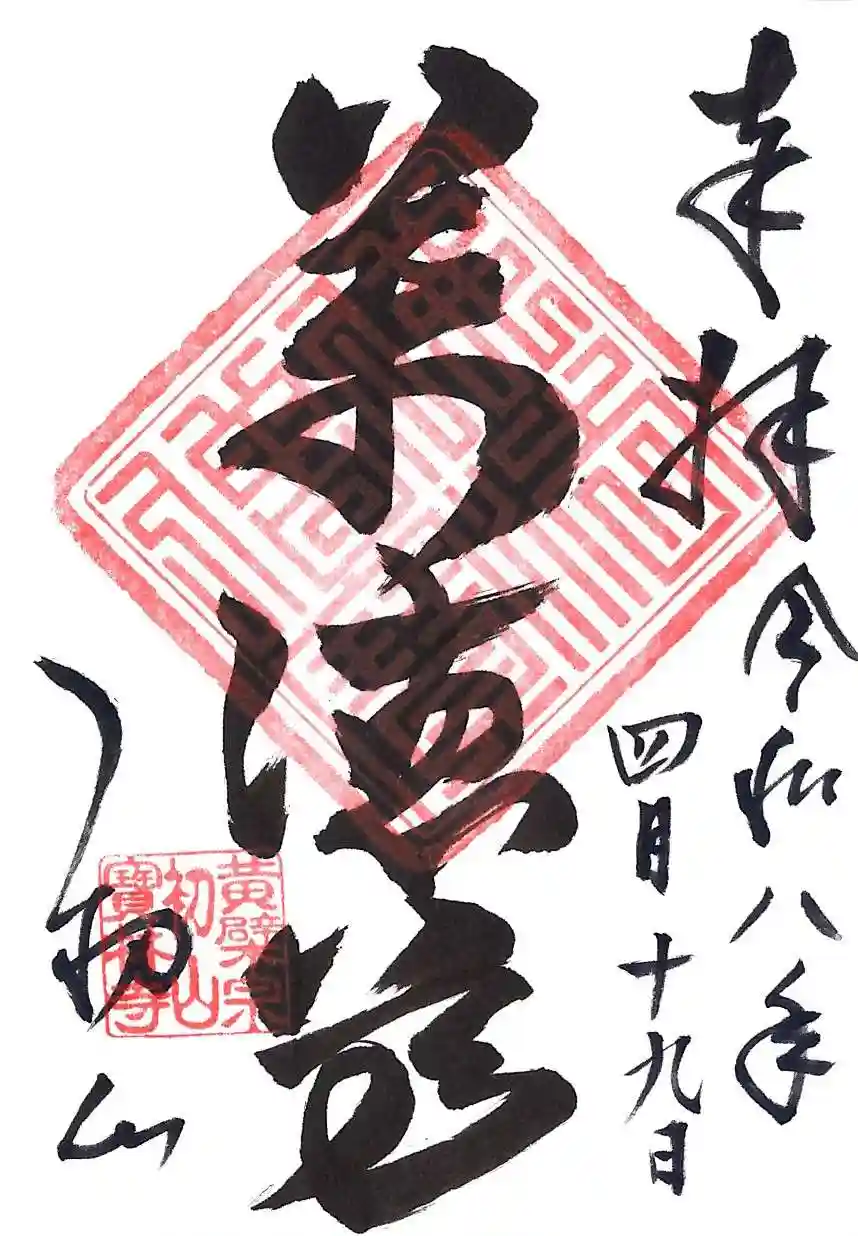 奉拝 令和八年
四月十九日
萬徳尊
初山
黄檗宗
初山
寳林寺